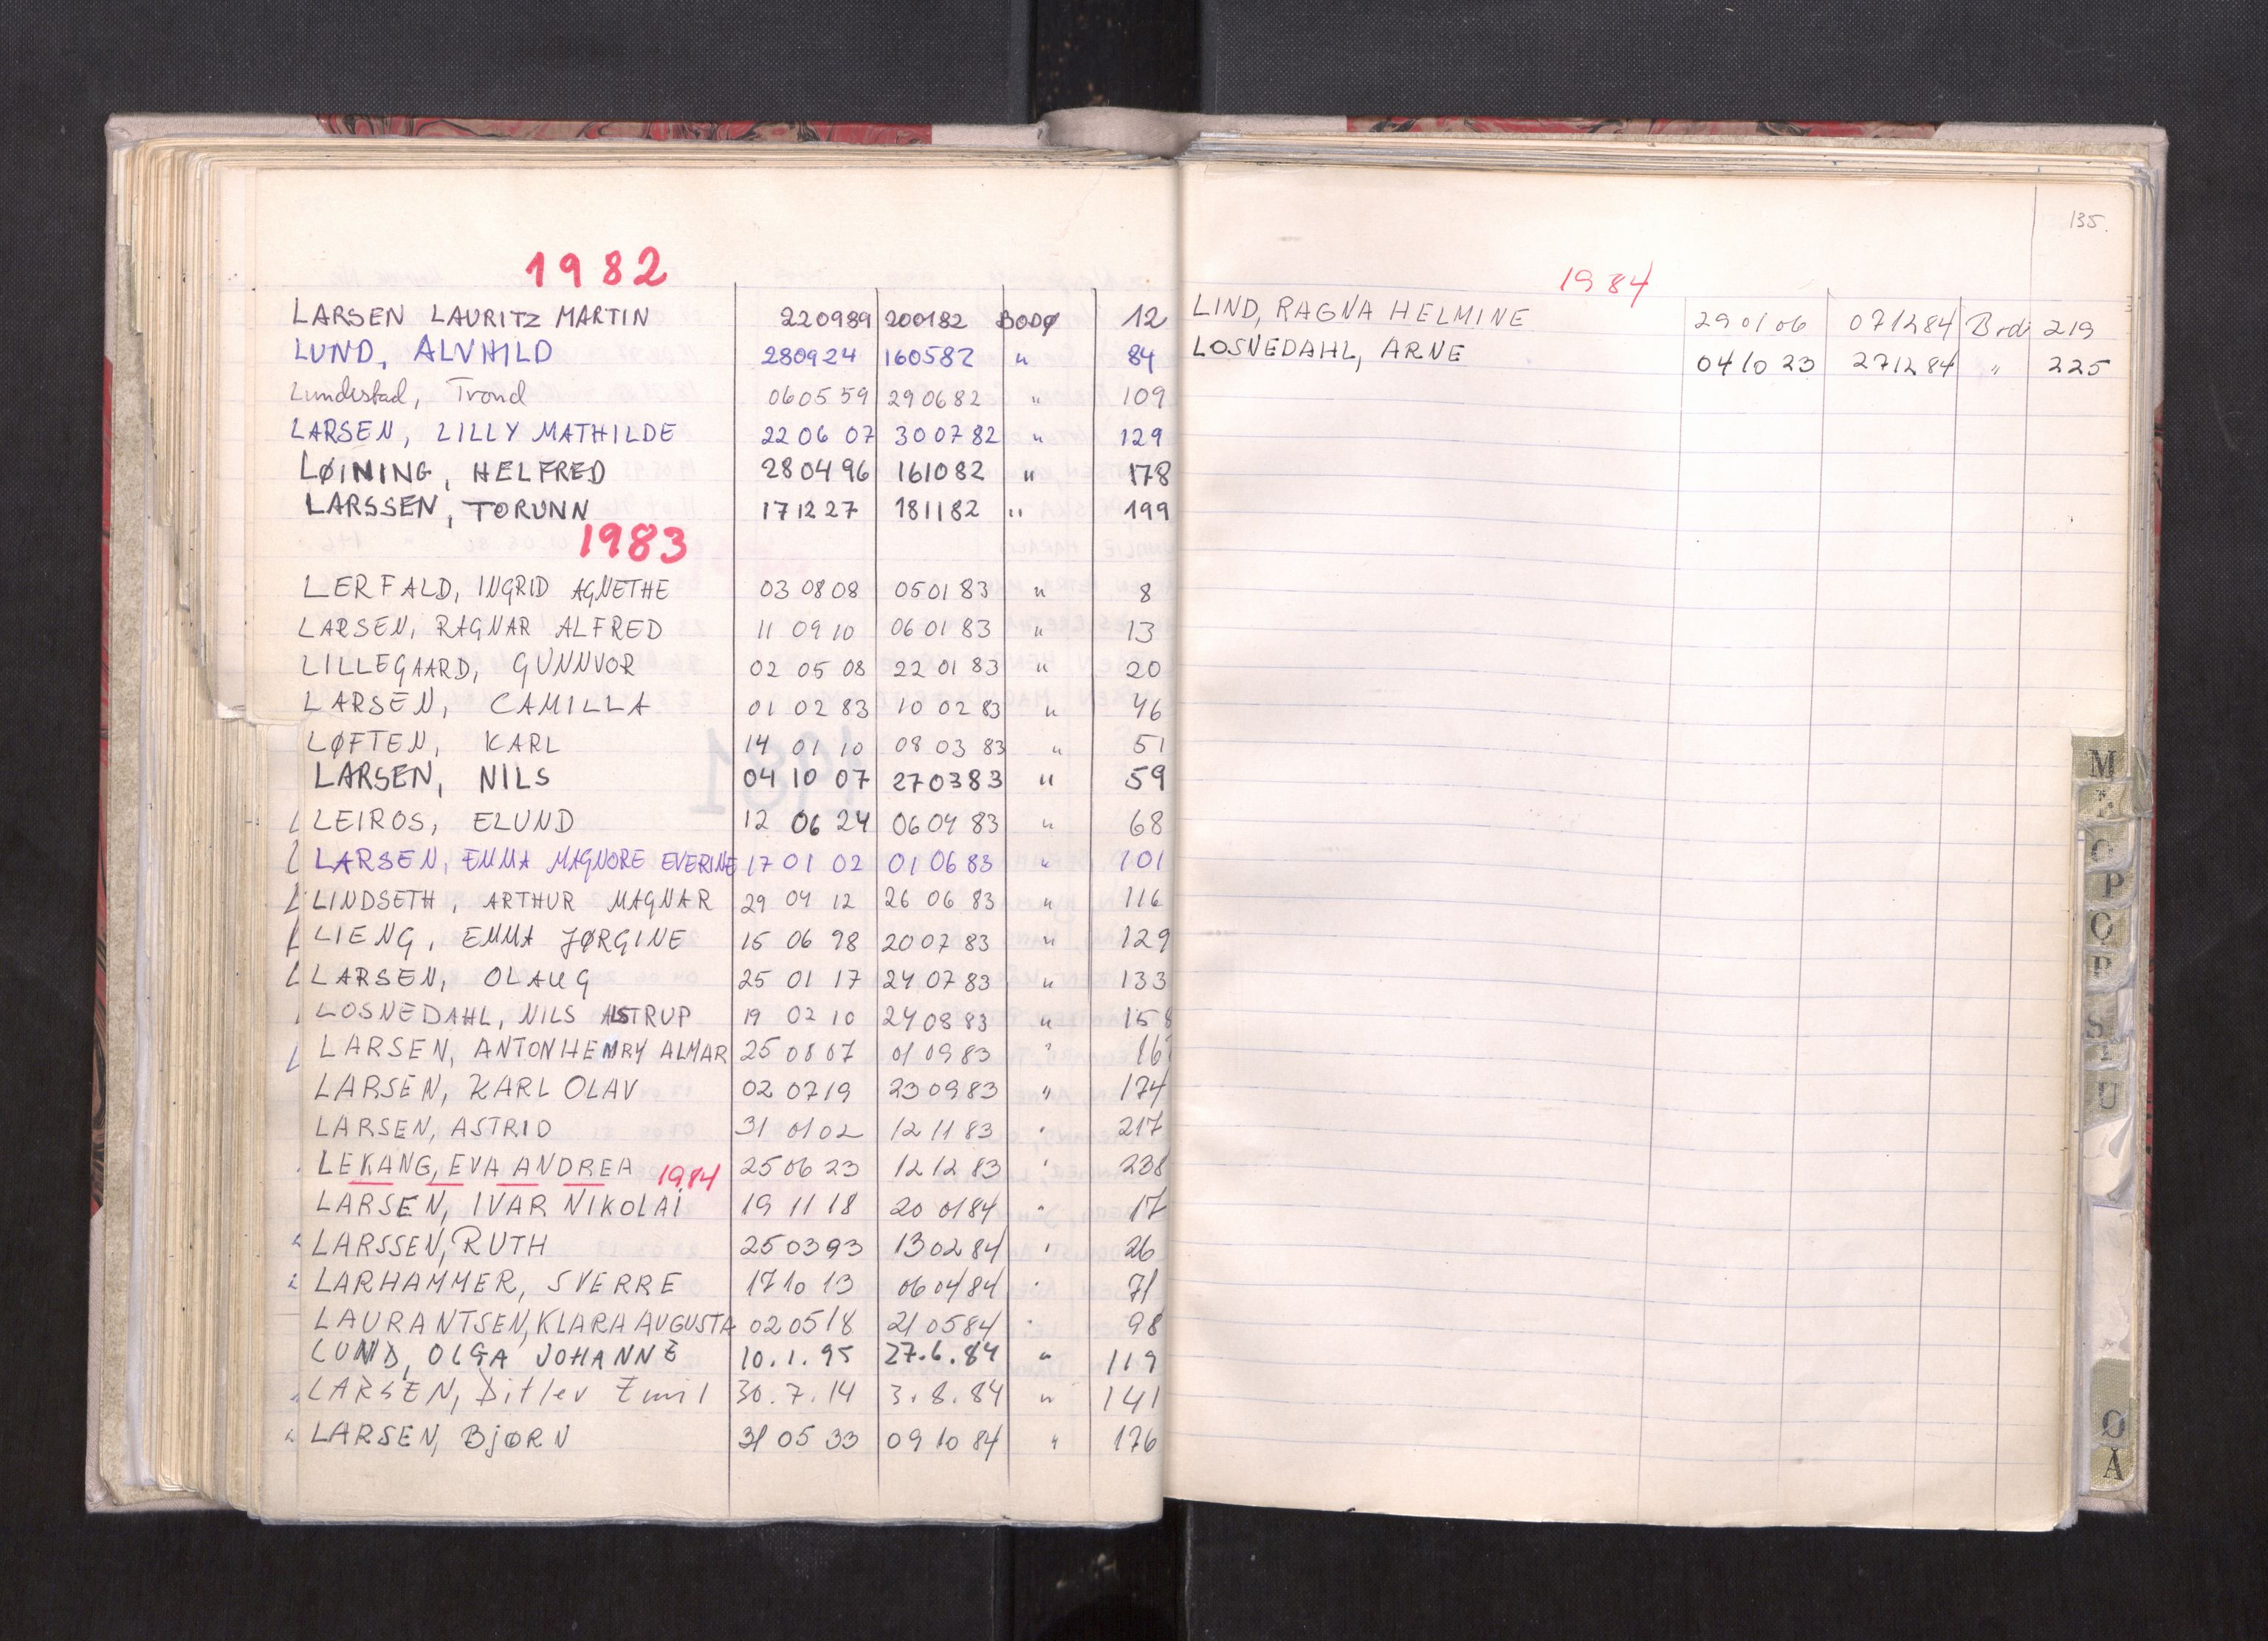 1982
LARSEN LAURITZ MARTIN 220989 200182 BODØ 12
LUND, ALVHILD 280924 160582 " 84
Lundestad, Trond 060559 290682 " 109
LARSEN, LILLY MATHILDE 22 06 07 300782 " 129
LØINING, HELFRED 280496 161082 " 178
LARSSEN, TORUNN 171227 181182 " 199
1983
LERFALD, INGRID AGNETHE 03 08 08 050183 " 8
LARSEN, RAGNAR ALFRED 11 09 10 06 01 83 " 13
LILLEGAARD, GUNNVOR 02 05 08 22 01 83 " 20
LARSEN, CAMILLA 01 02 83 10 02 83 " 46
LØFTEN, KARL 14 01 10 08 03 83 " 51
LARSEN, NILS 04 10 07 270383 " 59
LEIROS, ELUND 12 06 24 06 04 83 " 68
LARSEN, EMMA MAGNORE EVERINE 17 01 02 01 06 83 " 101
LINDSETH, ARTHUR MAGNAR 29 04 12 26 06 83 " 116
LIENG, EMMA JØRGINE 15 06 98 20 07 83 " 129
LARSEN, OLAUG 25 01 17 24 07 83 " 133
LOSNEDAHL, NILS ALSTRUP 19 02 10 24 08 83 " 158
LARSEN, ANTON HENRY ALMAR 25 08 07 01 09 83 " 16
LARSEN, KARL OLAV 02 07 19 23 09 83 " 174
LARSEN, ASTRID 31 01 02 12 11 83 " 217
LEKANG, EVA ANDREA 25 06 23 12 12 83 " 238
1984
LARSEN, IVAR NIKOLAI 19 11 18 20 01 84 " 17
LARSSEN, RUTH 25 03 93 13 02 84 " 26
LARHAMMER, SVERRE 17 10 13 06 04 84 " 71
LAURANTSEN, KLARA AUGUSTA 02 05 18 21 05 84 " 98
LUND, OLGA JOHANNE 10.1.95 27.6.84 " 119
LARSEN, Ditlev Emil 30.7.14 3.8.84 " 141
LARSEN, BJØRN 31 05 33 09 10 84 " 176
135.
1984
LIND, RAGNA HELMINE 29 01 06 07 12 84 Bodø 219
LOSNEDAHL, ARNE 04 10 23 27 12 84 " 225
M
P
S
U
Ø
Å